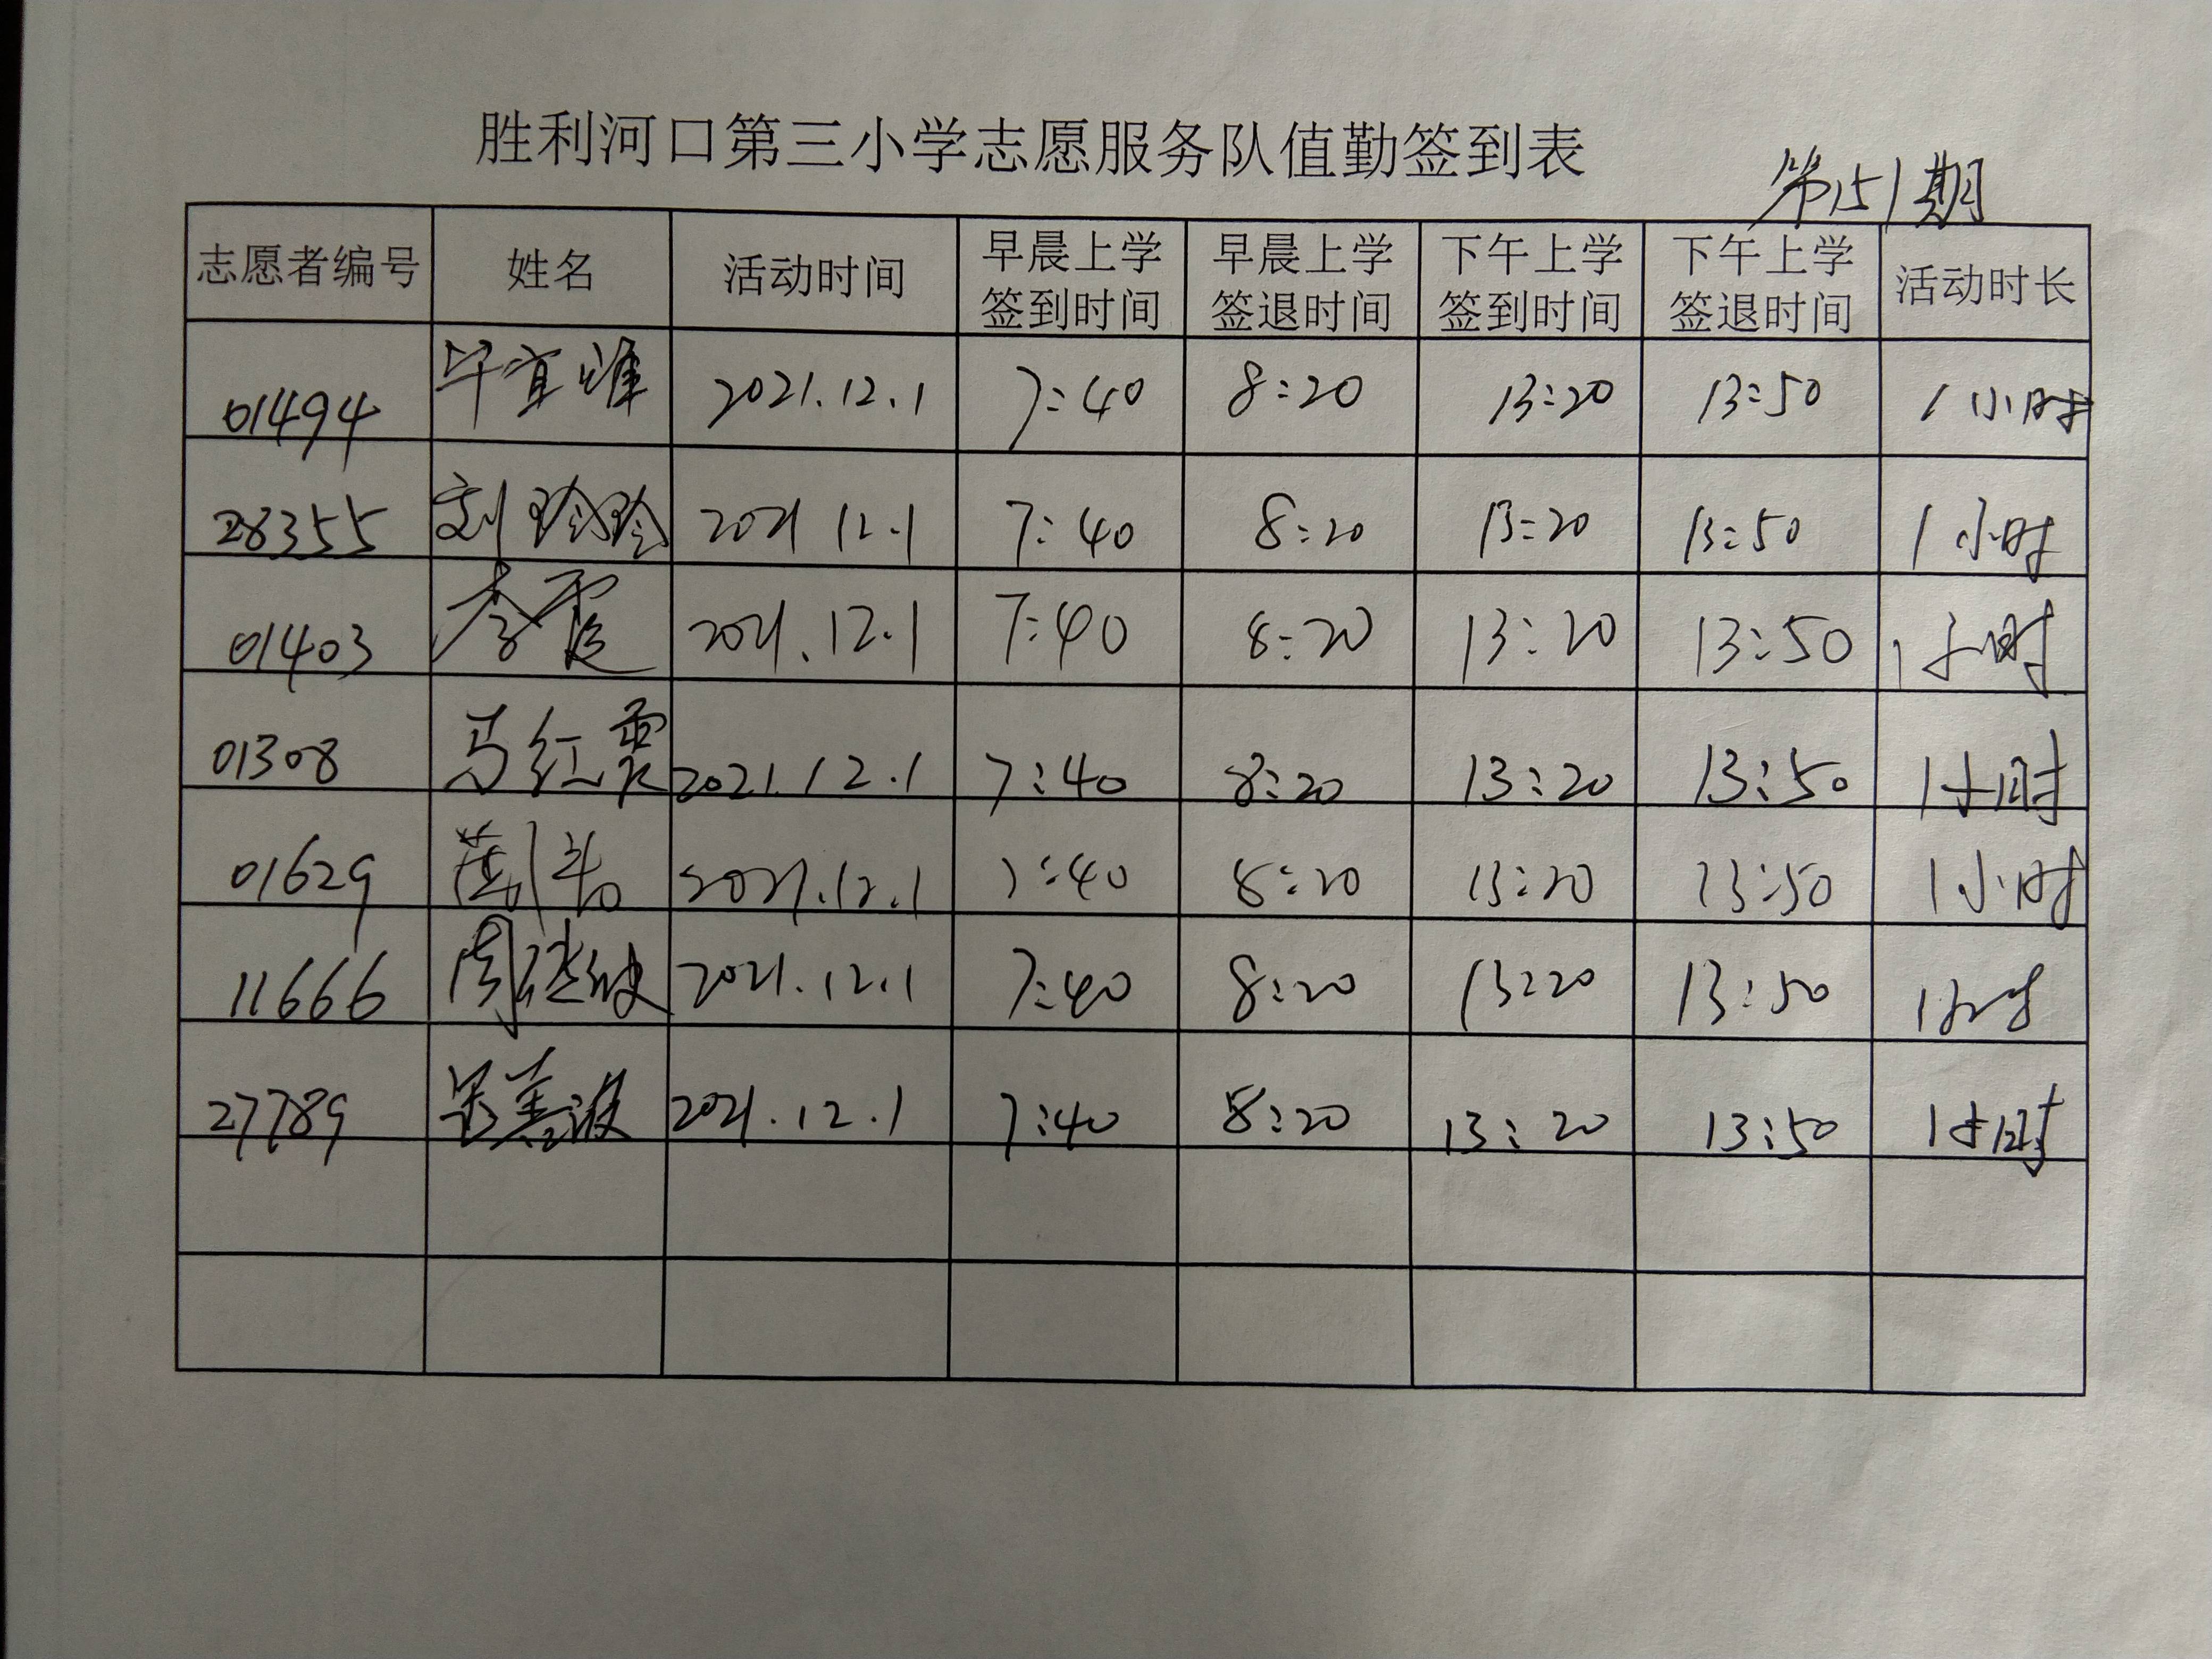 胜利河口第三小学志愿服务队值勤签到表
第151期
志愿者编号 姓名 活动时间 早晨上学签到时间 早晨上学签退时间 下午上学签到时间 下午上学签退时间 活动时长
01494 2021.12.1 7:40 8:20 13:20 13:50 1小时
28355 刘玲玲 2021 12.1 7:40 8:20 13:20 13:50 1小时
01403 李霞 2021.12.1 7:40 8:20 13:20 13:50 1小时
01308 马红霞 2021.12.1 7:40 8:20 13:20 13:50 1小时
01629 2021.12.1 7:40 8:20 13:20 13:50 1小时
11666 2021.12.1 7:40 8:20 13:20 13:50 1小时
27789 2021.12.1 7:40 8:20 13:20 13:50 1小时